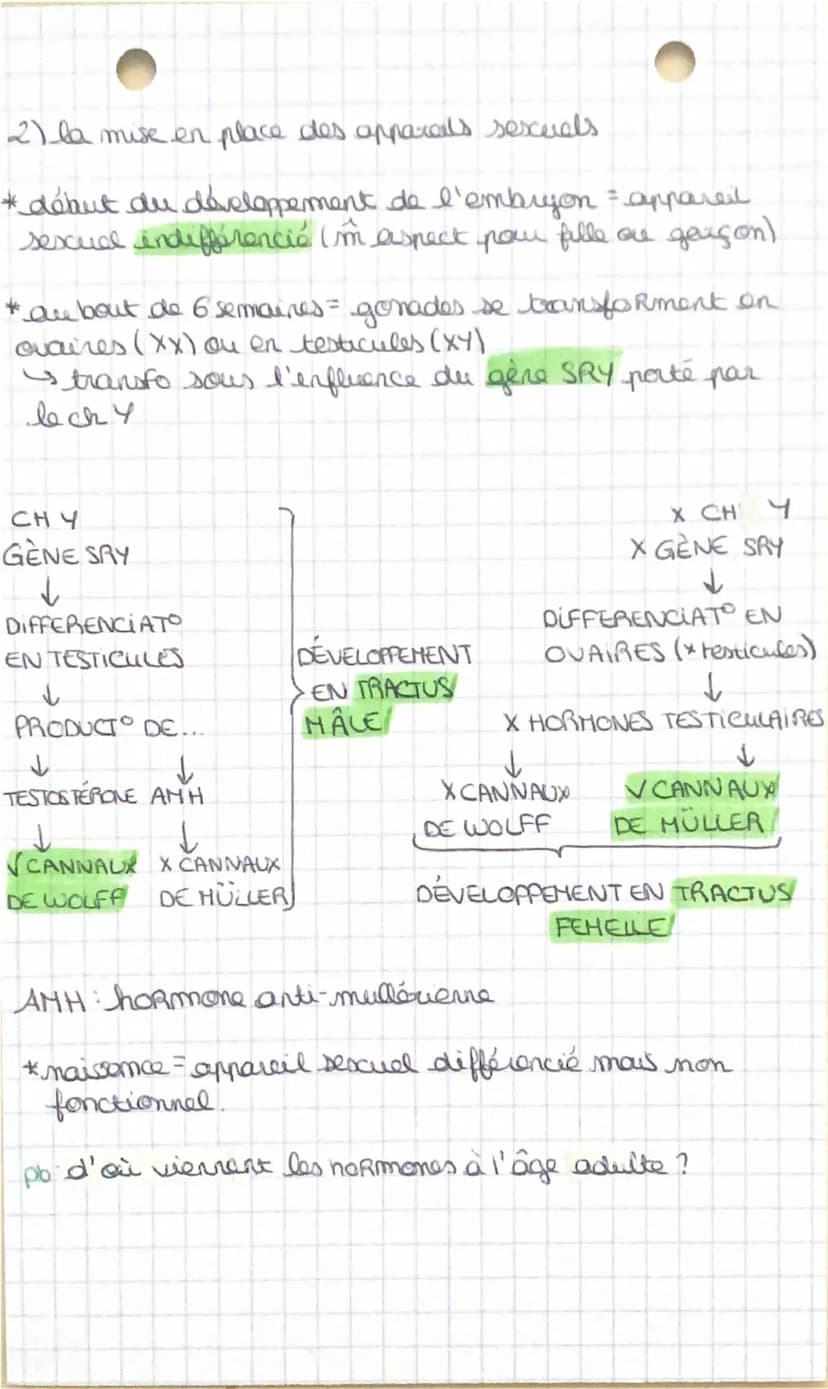 2) la mise en place des appareils sexuels
* début du développement de l'embryon = appareil
sexuel indifférencié (m̂ aspect pour fille ou garçon)
* au bout de 6 semaines = gonades se transforment en
ovaires (XX) ou en testicules (XY)
↳ transfo sous l'enfluence du gène SRY porté par
le ch Y
CH Y
GÈNE SRY
↓
DIFFERENCIAT°
EN TESTICULES
↓
PRODUCT° DE...
↓ ↓
TESTOSTÉRONE AMH
↓ ↓
√ CANNAUX X CANNAUX
DE WOLFF DE MÜLLER
DÉVELOPPEMENT
EN TRACTUS
MÂLE
X CH Y
X GÈNE SRY
↓
DIFFERENCIAT° EN
OVAIRES (x testicules)
↓
X HORMONES TESTICULAIRES
↓ ↓
X CANNAUX √ CANNAUX
DE WOLFF DE MÜLLER
DÉVELOPPEMENT EN TRACTUS
FEMELLE
AMH : hormone anti-mullérienne
* naissance = appareil sexuel différencié mais non
fonctionnel.
pb : d'où viennent les hormones à l'âge adulte ?